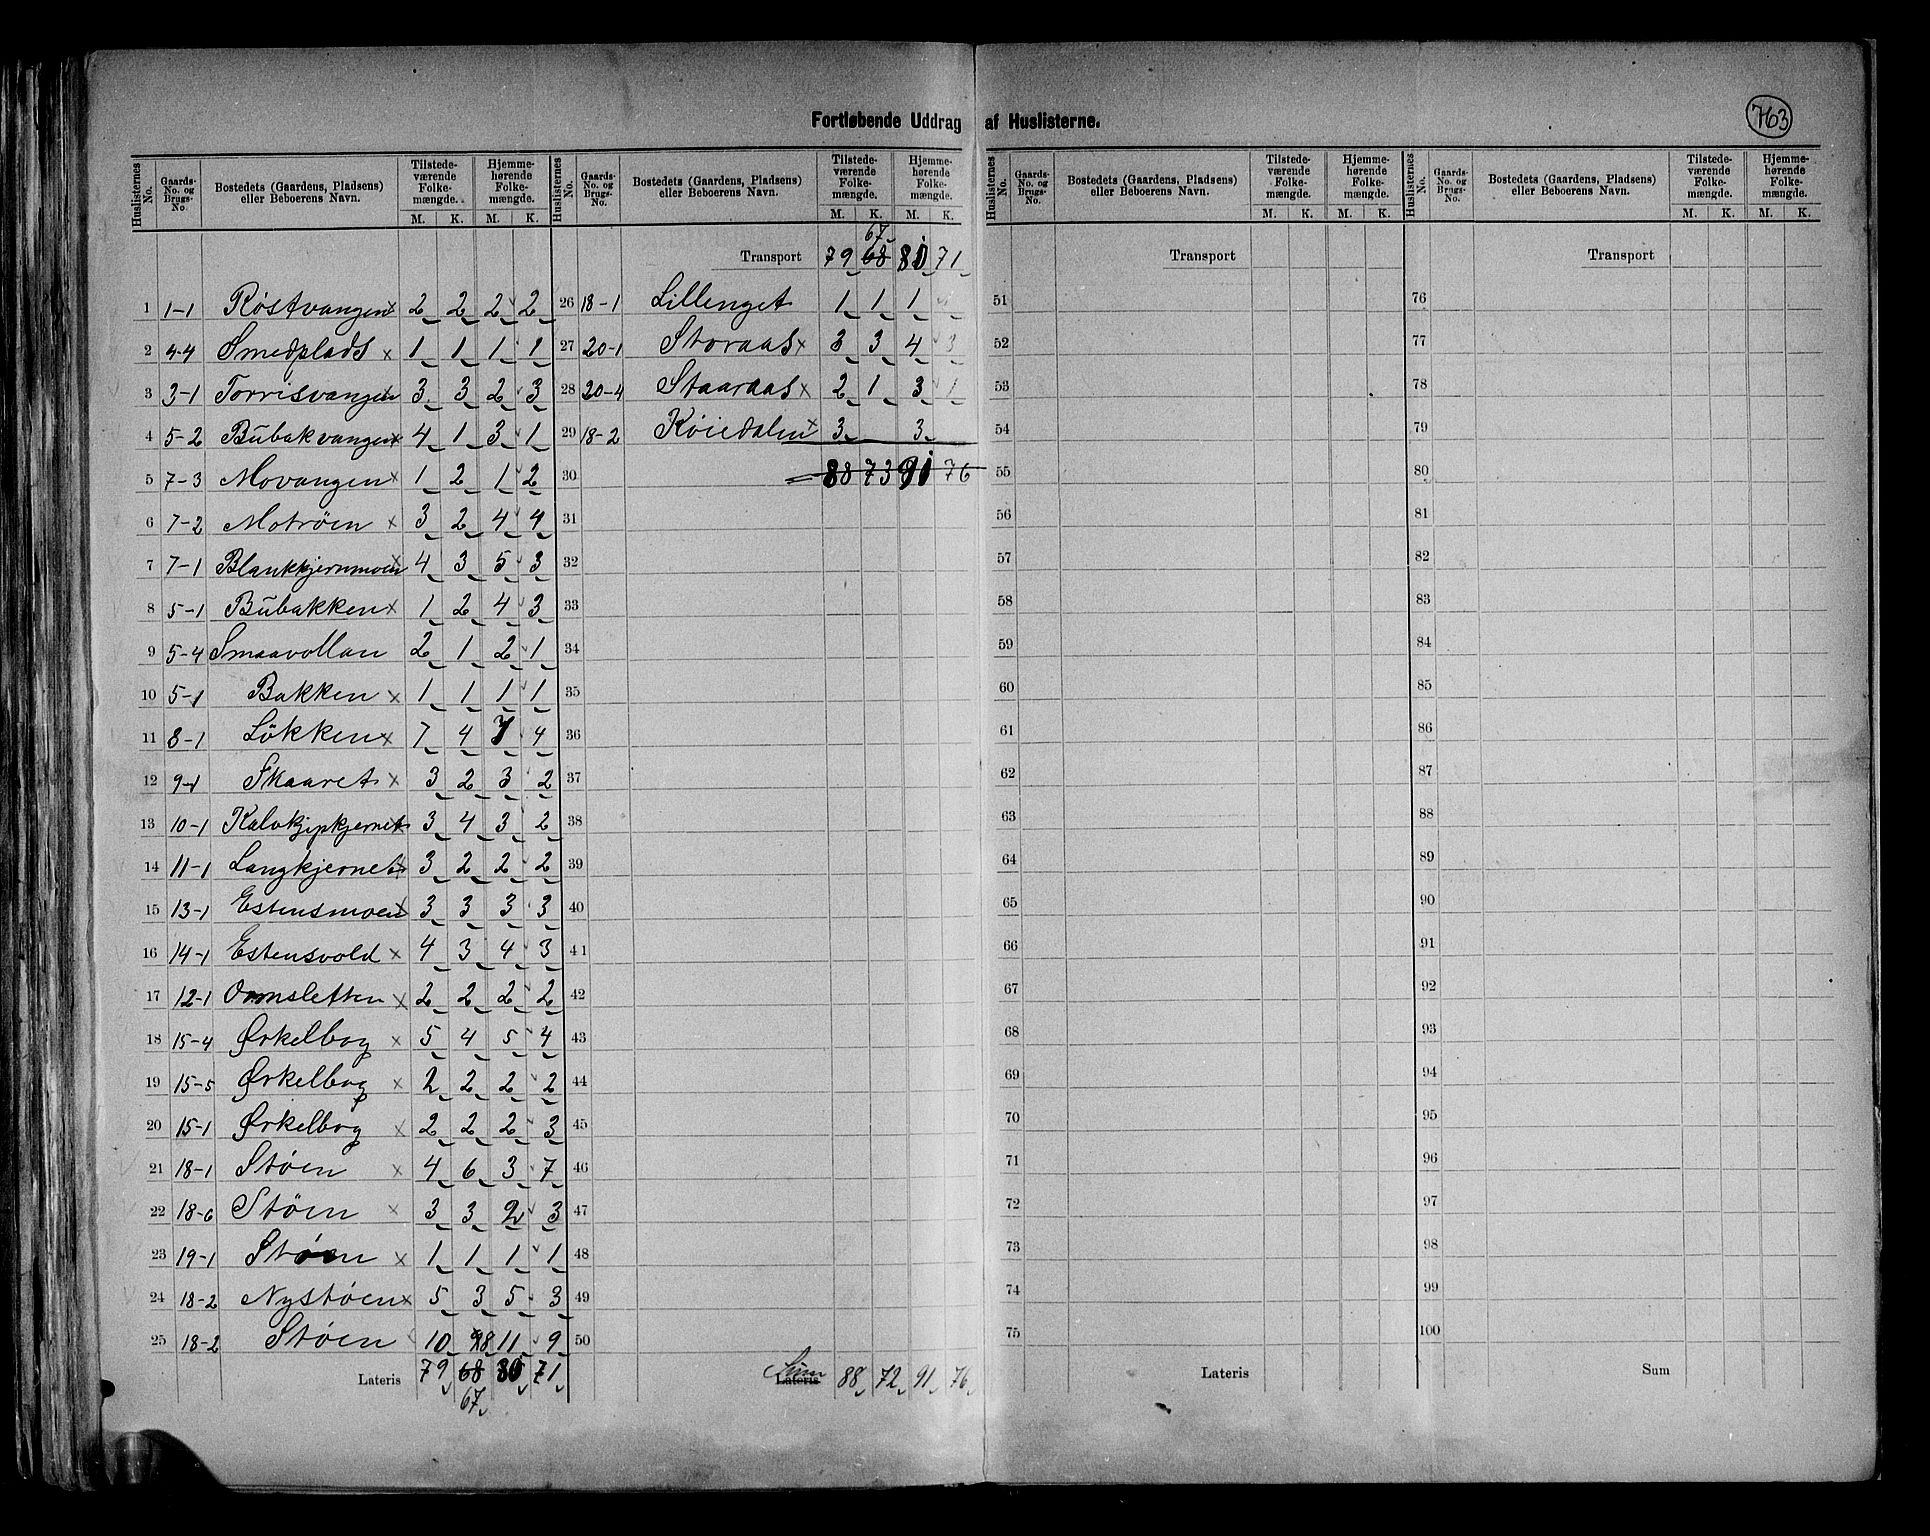 763
Fortløbende Uddrag af Huslisterne.
Huslisternes No. | Gaards-No. og Brugs-No. | Bostedets (Gaardens, Pladsens) eller Beboerens Navn. | Tilstedeværende Folkemængde. M. K. | Hjemmehørende Folkemængde. M. K.
1 1-1 Røstvangen x 2 2 2 2
2 4-4 Smedplads x 1 1 1 1
3 3-1 Torrisvangen 3 3 2 3
4 5-2 Bubakvangen x 4 1 3 1
5 7-3 Movangen x 1 2 1 2
6 7-2 Motrøen x 3 2 4 4
7 7-1 Blankkjernmoen x 4 3 5 3
8 5-1 Bubakken x 1 2 4 3
9 5-4 Smaavollan 2 1 2 1
10 5-1 Bakken x 1 1 1 1
11 8-1 Løkken x 7 4 7 4
12 9-1 Skaaret x 3 2 3 2
13 10-1 Kalvkjipkjernet x 3 4 3 2
14 11-1 Langkjernet x 3 2 2 2
15 13-1 Estensmoen x 3 3 3 3
16 14-1 Estensvold x 4 3 4 3
17 12-1 Ormsletten x 2 2 2 2
18 15-4 Ørkelbog x 5 4 5 4
19 15-5 Ørkelbog x 2 2 2 2
20 15-1 Ørkelbog x 2 2 2 3
21 18-1 Støen x 4 6 3 7
22 18-6 Støen x 3 3 2 3
23 19-1 Støen x 1 1 1 1
24 18-2 Nystøen x 5 3 5 3
25 18-2 Støen 10 8 11 9
Lateris 79 68 80 71
67
Huslisternes No. | Gaards-No. og Brugs-No. | Bostedets (Gaardens, Pladsens) eller Beboerens Navn. | Tilstedeværende Folkemængde. M. K. | Hjemmehørende Folkemængde. M. K.
67
Transport 79 68 80 71
26 18-1 Lillenget 1 1 1
27 20-1 Storaas x 3 3 4 3
28 20-4 Staaraas x 2 1 3 1
29 18-2 Køiedalen x 3 3
30 88 73 91 76
31
32
33
34
35
36
37
38
39
40
41
42
43
44
45
46
47
48
49
50
Lateris Sum 88 72 91 76
Huslisternes No. | Gaards-No. og Brugs-No. | Bostedets (Gaardens, Pladsens) eller Beboerens Navn. | Tilstedeværende Folkemængde. M. K. | Hjemmehørende Folkemængde. M. K.
Transport
51
52
53
54
55
56
57
58
59
60
61
62
63
64
65
66
67
68
69
70
71
72
73
74
75
Lateris
Huslisternes No. | Gaards-No. og Brugs-No. | Bostedets (Gaardens, Pladsens) eller Beboerens Navn. | Tilstedeværende Folkemængde. M. K. | Hjemmehørende Folkemængde. M. K.
Transport
76
77
78
79
80
81
82
83
84
85
86
87
88
89
90
91
92
93
94
95
96
97
98
99
100
Sum